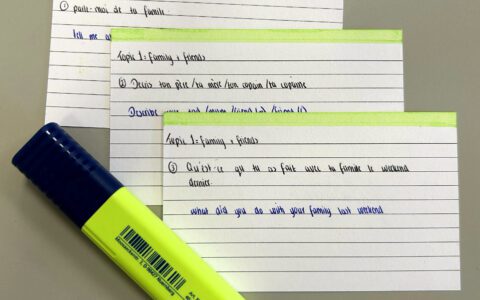 ① parle-moi de ta famille
tell me a
Topic 1: Family + friends
② Décris ton père/ta mère/ton copain/ta copaine
Describe your dad
Topic 1: Family + friends
③ Qu'est-ce qu tu as fait avec ta famille le weekend
dernier
what did you do with your family last weekend
Nuremberg